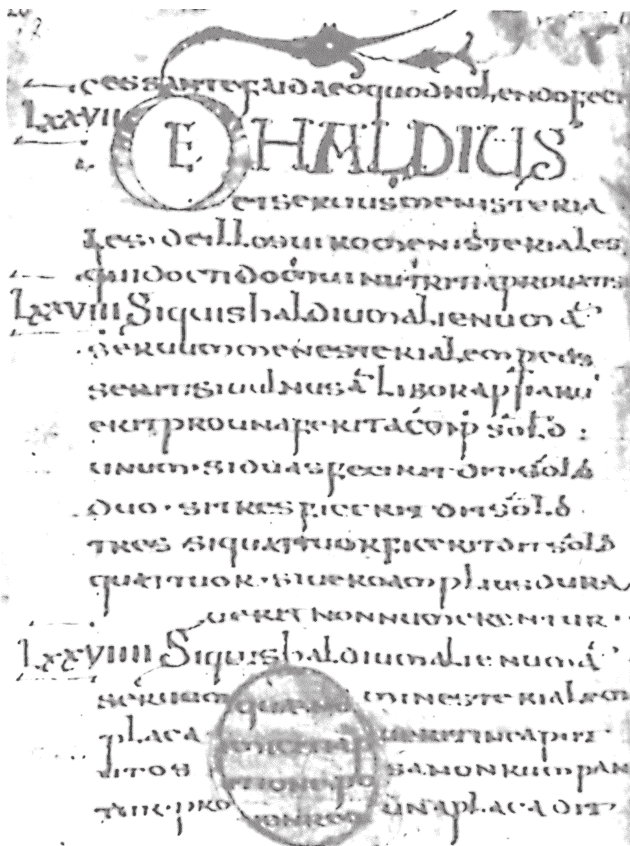 cessante faida eo quod nolendo feci
Lxxvii DE HALDIUS
et seruius menisteria
les. de illos uiro menisteriales
qui docti domui nutriti aprouatis
Lxxviii Siquis haldium alienum a
seruum menesterialem
serit. si uulnus a libor apparu
erit pro una ferita comp sold
unum. si duas fecerit dit sold
duo. si tres ficerit dit sold
tres si quattuor ficerit dit sold
quattuor. si uero amplius dura
uerit non numerentur.
Lxxviiii Siquis haldium alienum a
seruum ministerialem
placa uerit in capit
sa non rumpan
tur. pro una placa dit